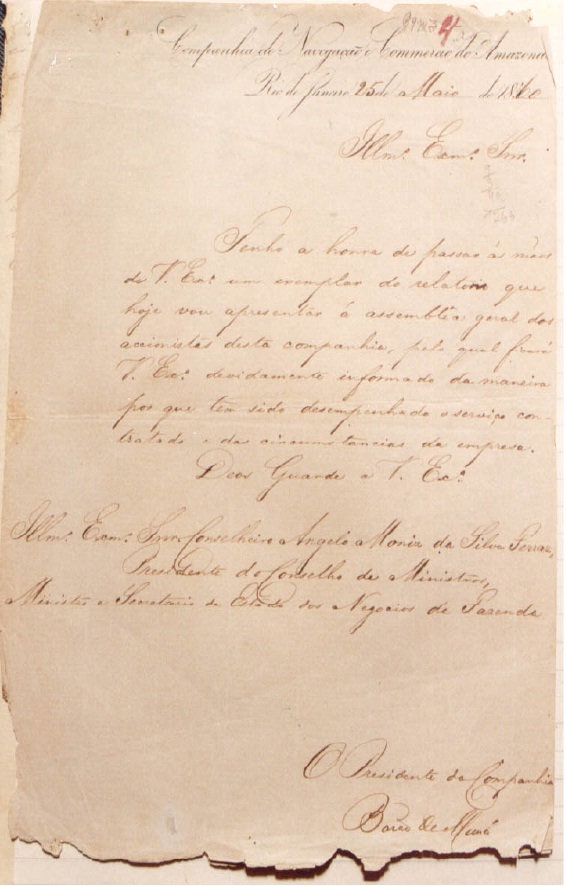 Companhia de Navegação e Commercio do Amazonas
Rio de Janeiro 25 de Maio de 1860
Illmo. Exmo. Snr.
Tenho a honra de passar ás mãos
de V. Exa. um exemplar do relatorio que
hoje vou apresentar á assembléa geral dos
accionistas desta companhia, pelo qual ficará
V. Exa. devidamente informado da maneira
por que tem sido desempenhado o serviço con-
tratado e das circumstancias da empresa.
Deos Guarde a V. Exa.
Illmo. Exmo. Snr. Conselheiro Angelo Moniz da Silva Ferraz,
Presidente do Conselho de Ministros,
Ministro e Secretario de Estado dos Negocios da Fazenda
O Presidente da Companhia
Barão de Mauá